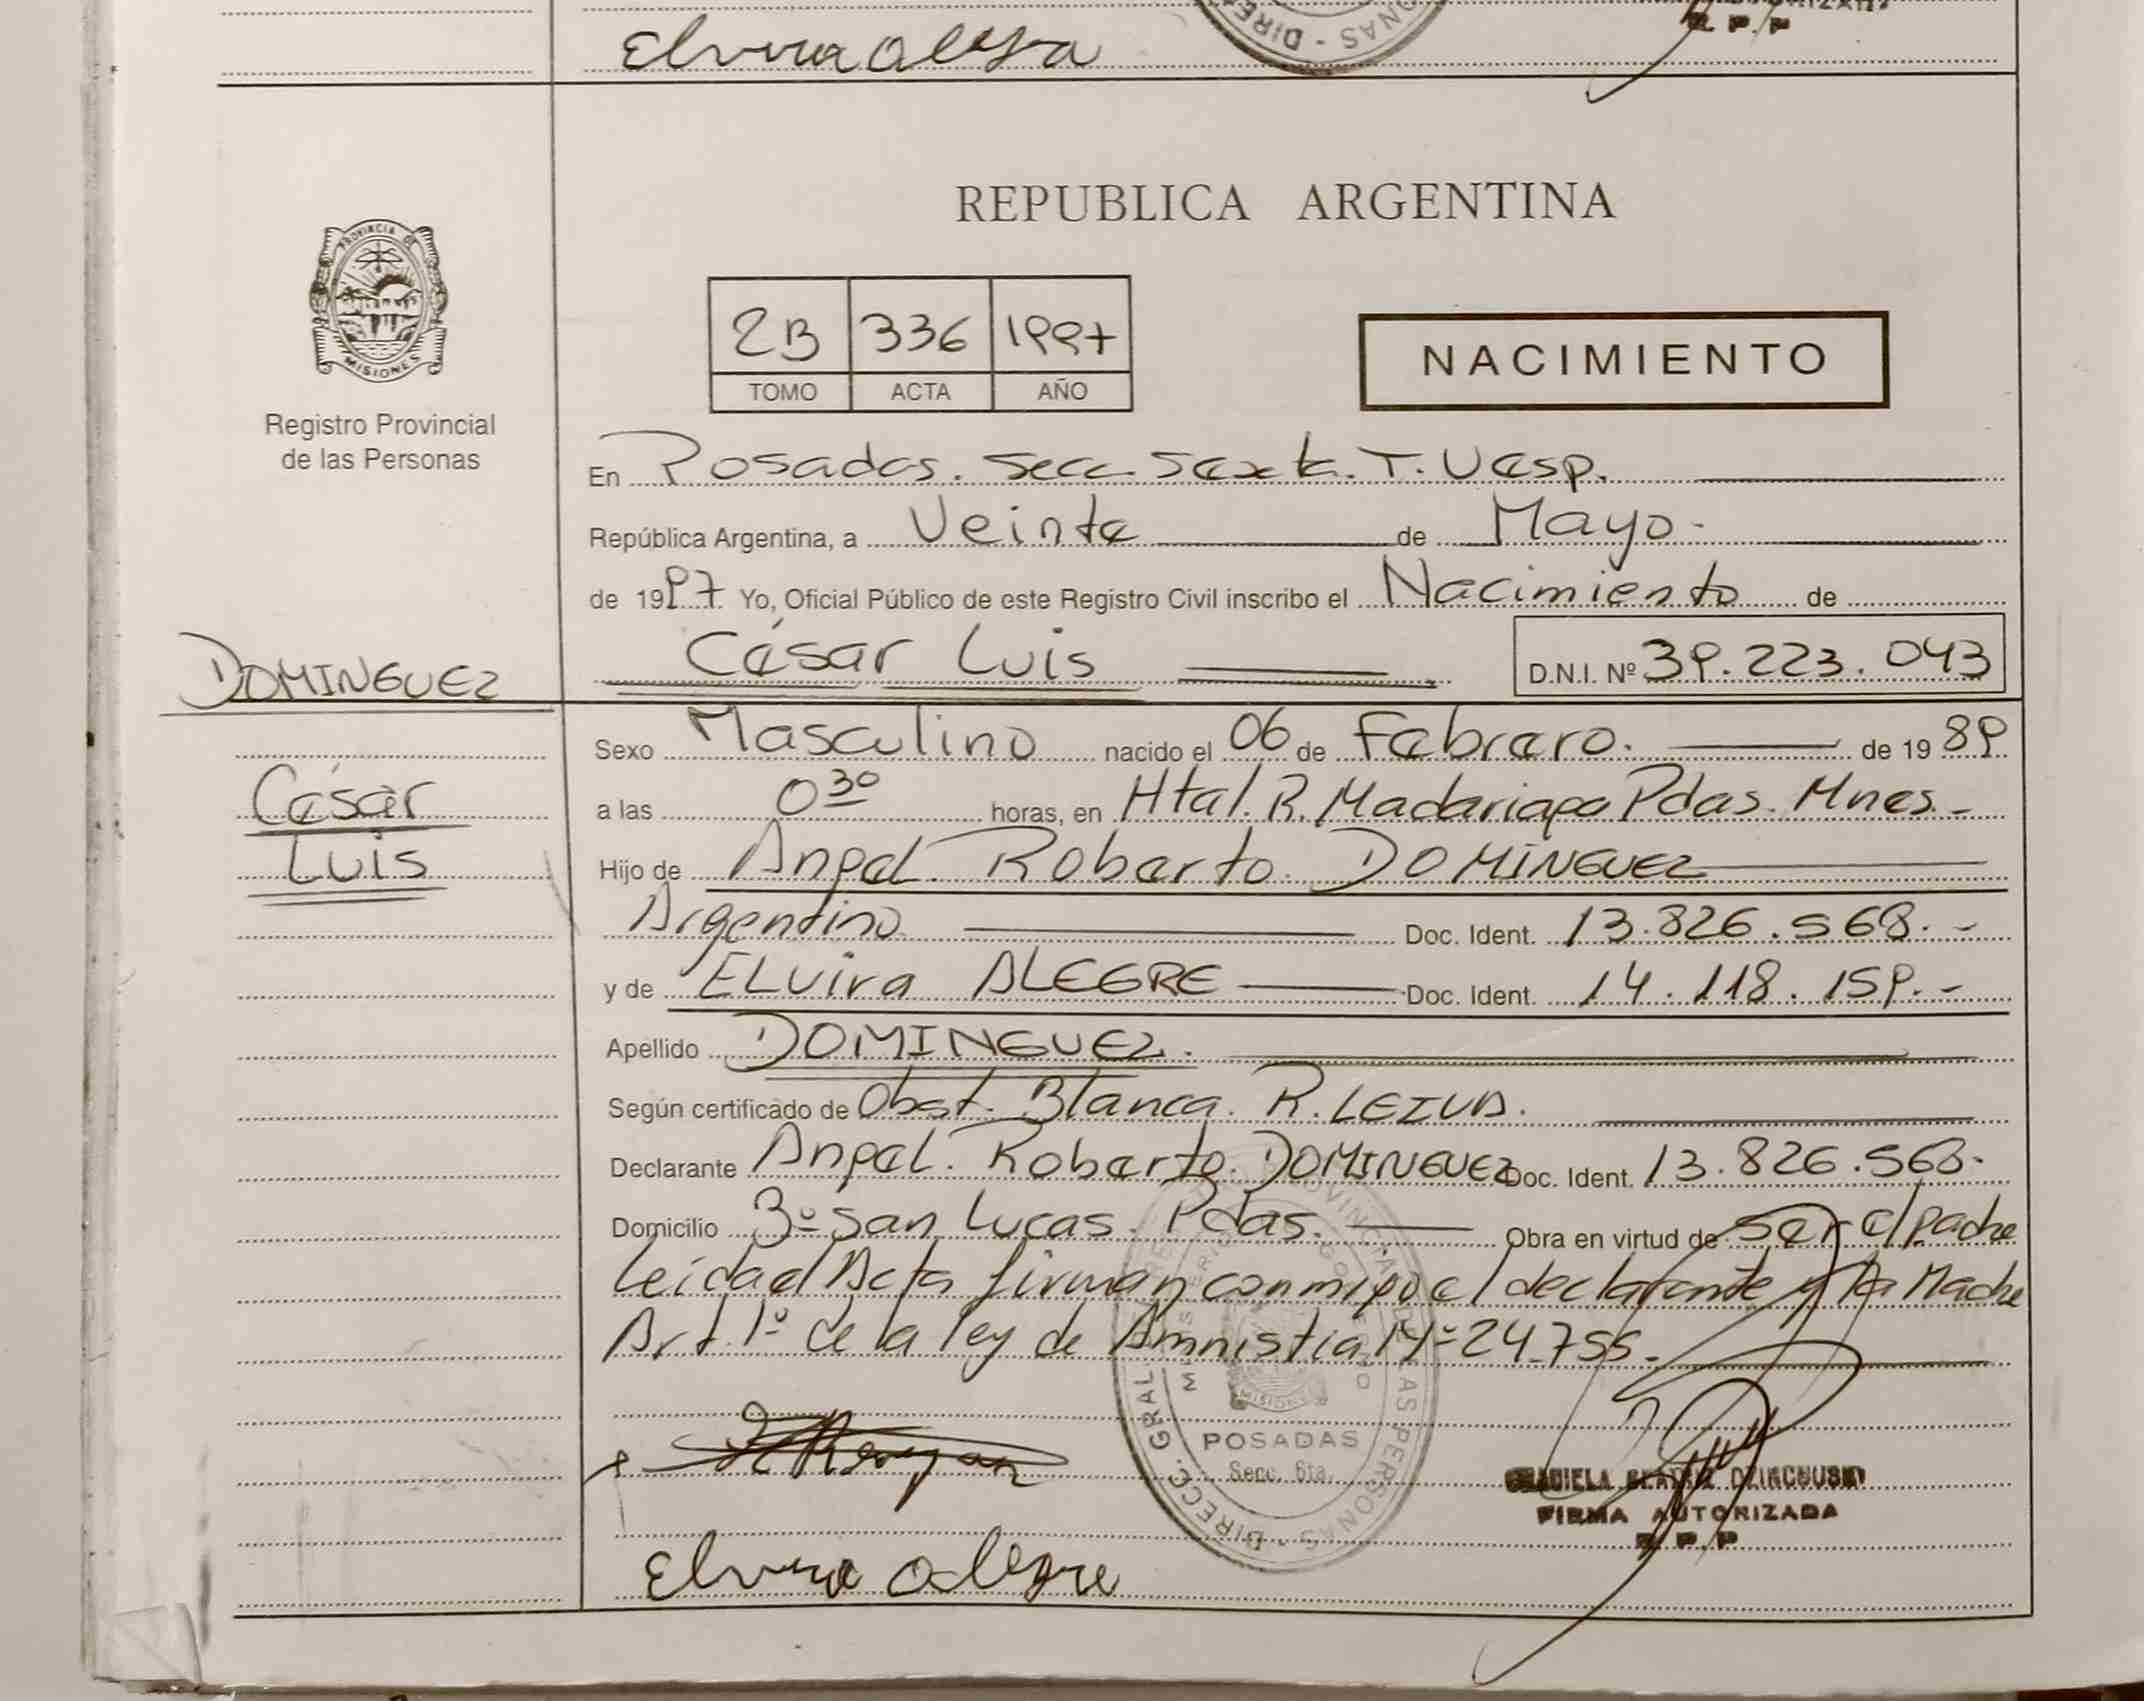 Elvira Alegre
R.P.P
PROVINCIA DE
MISIONES
Registro Provincial
de las Personas
REPUBLICA ARGENTINA
2B 336 1997
TOMO ACTA AÑO
NACIMIENTO
En Posadas. Secc. Sexta. T. Vesp.
República Argentina, a Veinte de Mayo.
de 1997 Yo, Oficial Público de este Registro Civil inscribo el Nacimiento de
César Luis D.N.I. Nº 39.223.043
DOMINGUEZ
César
Luis
Sexo Masculino nacido el 06 de Febrero. de 1989
a las 030 horas, en Htal. R. Madariaga Pdas. Mnes.-
Hijo de Angel. Roberto. DOMINGUEZ
Argentino Doc. Ident. 13.826.568.-
y de ELvira ALEGRE Doc. Ident. 14.118.159.-
Apellido DOMINGUEZ.
Según certificado de Obst. Blanca. R. LEZUA.
Declarante Angel. Roberto. DOMINGUEZ Doc. Ident. 13.826.568.
Domicilio Bº San Lucas. Pdas. Obra en virtud de ser el padre
leida el Acta firman conmigo el declarante y la Madre
Art. 1º de la ley de Amnistia Nº 24.755.
DIRECC. GRAL. PROVINCIAL DE LAS PERSONAS
MINISTERIO GOBIERNO
MISIONES
POSADAS
Secc. 6ta.
FIRMA AUTORIZADA
R.P.P
Elvira Alegre